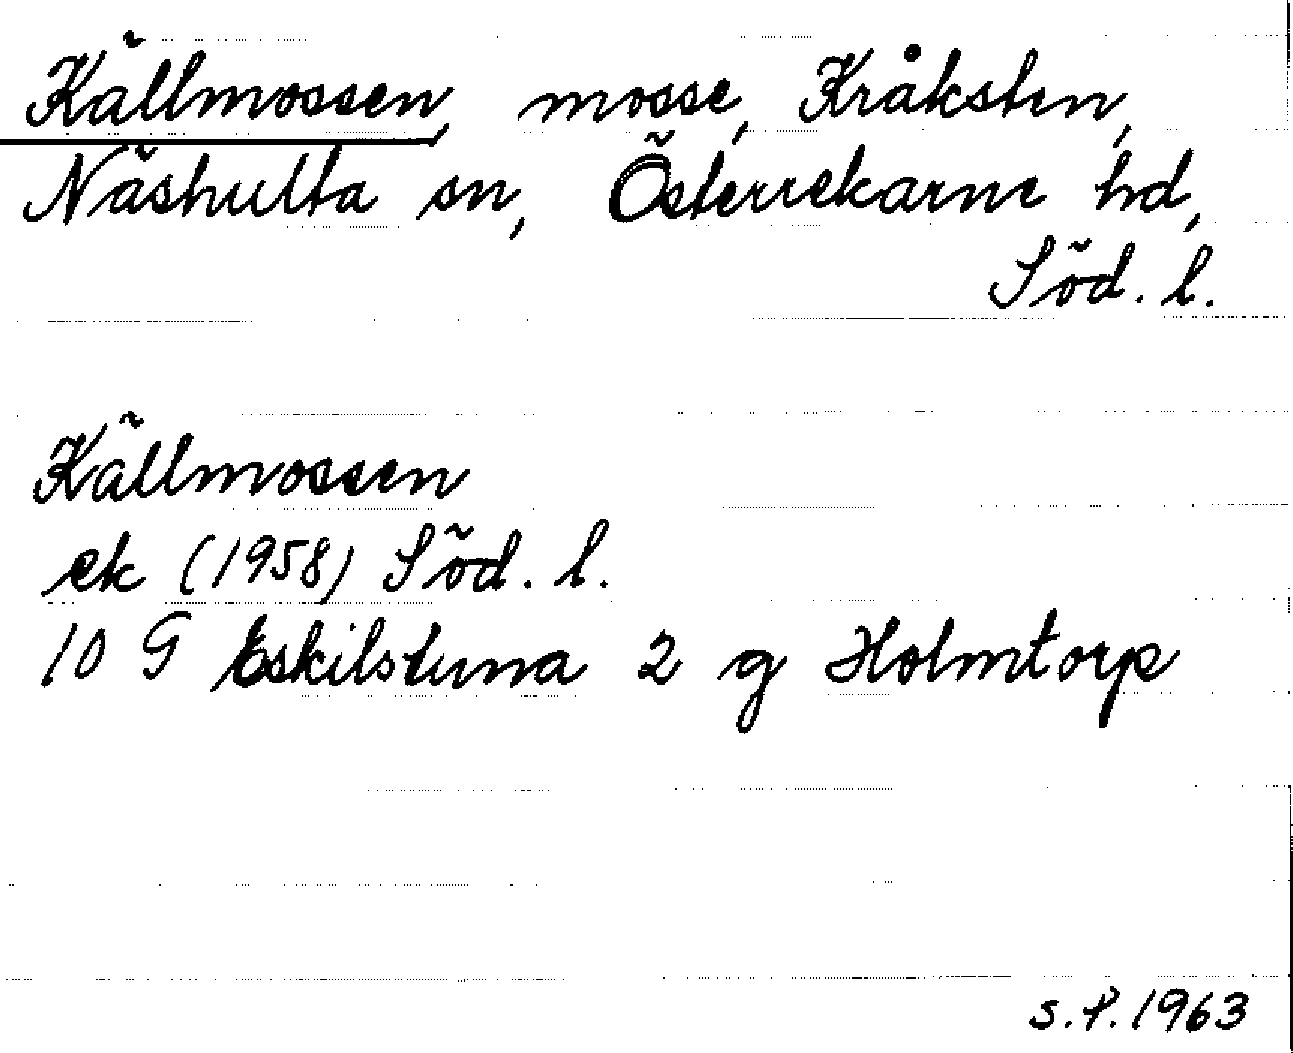 Källmossen, mosse, Kråksten,
Näshulta sn, Österrekarne hd,
Söd. l.
Källmossen
ek (1958) Söd. l.
10 G Eskilstuna 2 g Holmtorp
S.P. 1963